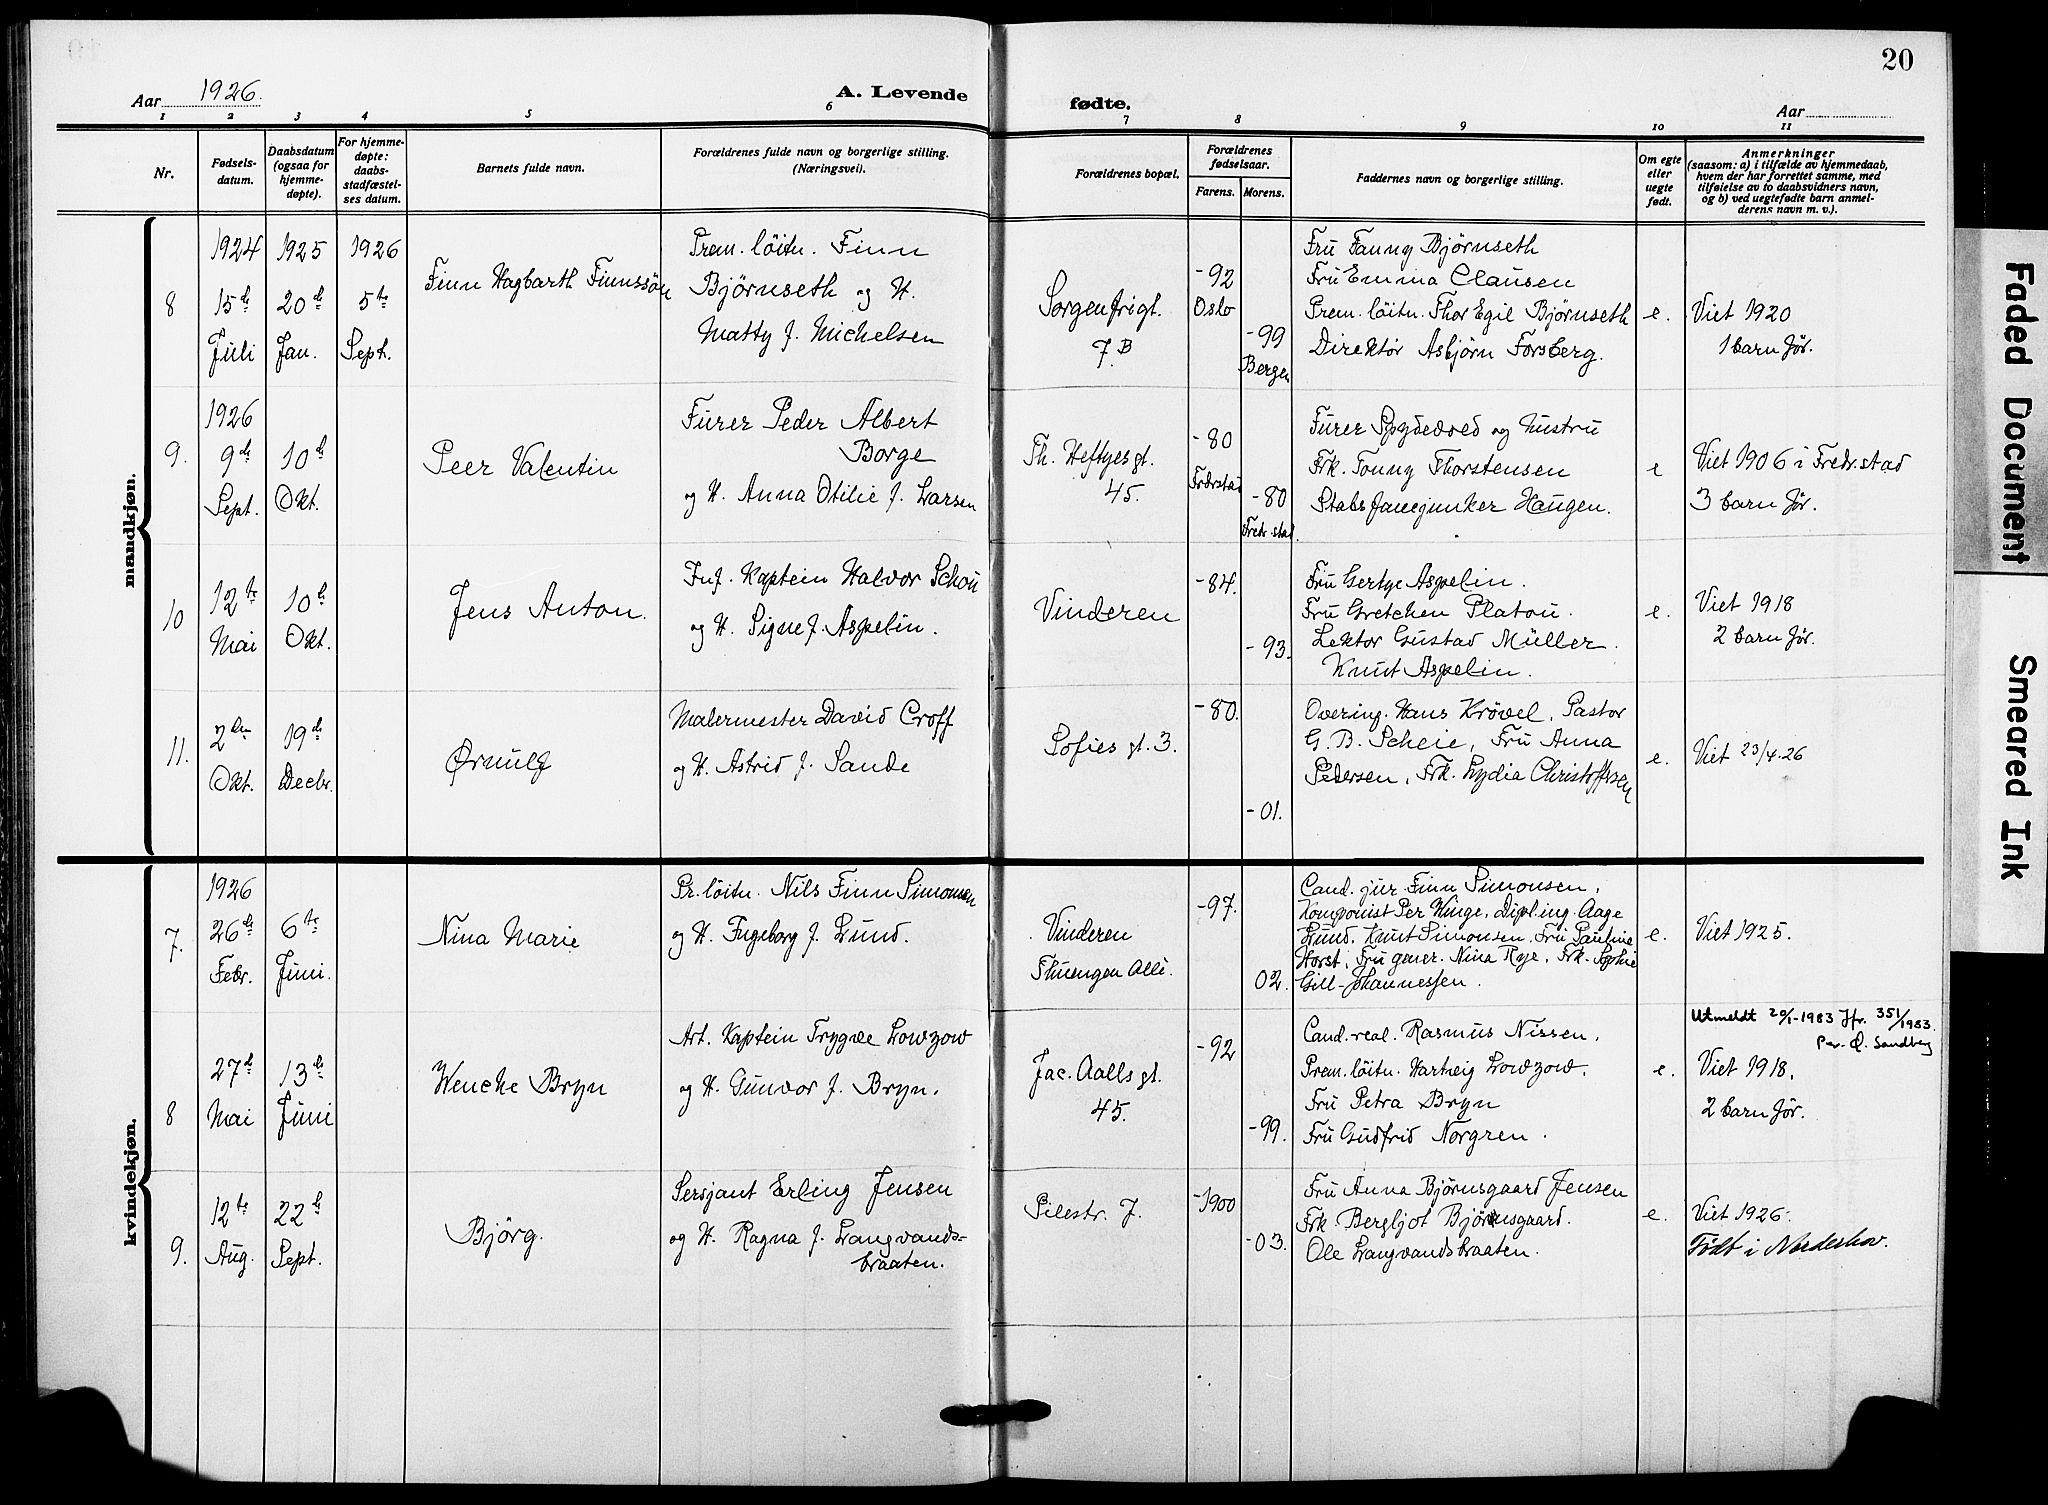 20
Aar 1926.
A. Levende fødte.
Aar
1 2 3 4 5 6 7 8 9 10 11
Nr.
Fødsels-
datum.
Daabsdatum
(ogsaa for
hjemme-
døpte).
For hjemme-
døpte:
daabs-
stadfæstel-
ses datum.
Barnets fulde navn.
Forældrenes fulde navn og borgerlige stilling.
(Næringsvei).
Forældrenes bopæl.
Forældrenes
fødselsaar.
Farens. Morens.
Faddernes navn og borgerlige stilling.
Om egte
eller
uegte
født.
Anmerkninger
(saasom: a) i tilfælde av hjemmedaab,
hvem der har forrettet samme, med
tilføielse av to daabsvidners navn,
og b) ved uegtefødte barn anmel-
derens navn m. v.).
mandkjøn.
8
1924
15de
Juli
1925
20de
Jan.
1926
5te
Sept.
Finn Hagbarth Finnssön
Prem. löitn. Finn
Björnseth og H.
Matty f. Michelsen
Sorgenfrigt.
7.B
-92
Oslo
-99
Bergen
Fru Fanny Björnseth
Fru Emma Clausen
Prem. löitn. Thor Egil Björnseth
Direktör Asbjörn Forsberg.
e.
Viet 1920
1 barn för.
9.
1926
9de
Sept.
10de
Okt.
Peer Valentin
Furer Peder Albert
Borge
og H. Anna Otilie f. Larsen
Th. Heftyes gt.
45.
-80
Fredrstad
-80
Fredr.stad.
Furer Spydevold og hustru
Frk. Tonny Thorstensen
Stabsfanejunker Haugen.
e
Viet 1906 i Fredr.stad
3 barn för.
10
12te
Mai
10de
Okt.
Jens Anton.
Inf. Kaptein Halvor Schou
og H. Signe f. Aspelin.
Vinderen
-84.
-93.
Fru Gertye Aspelin.
Fru Gretchen Platou.
Lektor Gustav Müller.
Knut Aspelin.
e.
Viet 1918
2 barn för.
11.
2den
Okt.
19de
Decbr.
Ørnulf
Malermester David Croff
og H. Astrid f. Sande
Sofies gt. 3.
-80.
-01.
Overing. Hans Krövel, Pastor
G. B. Scheie, Fru Anna
Petersen, Frk. Lydia Christoffersen
e.
Viet 23/4.26
kvindekjøn.
7.
1926
26de
Febr.
6te
Juni.
Nina Marie
Pr. löitn. Nils Finn Simonsen
og H. Ingeborg f. Lund.
Vinderen
Thuengen Allé.
-97.
02.
Cand. jur. Finn Simonsen,
Komponist Per Winge, Dipl.ing. Aage
Lund, Knut Simonsen, Fru Pauline
Horst, Fru gener. Nina Rye, Frk. Sophie
Gill-Johannessen.
e.
Viet 1925.
8
27de
Mai
13de
Juni
Wenche Bryn
Art. Kaptein Trygve Lowzow
og H. Gunvor f. Bryn.
Jac. Aalls gt.
45.
-92
-99.
Cand. real. Rasmus Nissen,
Prem. löitn. Hartvig Lowzow,
Fru Petra Bryn
Fru Gudfrid Norgren.
e.
Utmeldt 20/1-1983 Jfr. 351/1983.
Per. Ø. Sandberg
Viet 1918,
2 barn för.
9.
12te
Aug.
22de
Sept.
Björg.
Sersjant Erling Jensen
og H. Ragna f. Langvands-
braaten.
Pilestr. 7.
-1900
-03.
Fru Anna Björnsgaard Jensen
Frk. Bergljot Björnsgaard.
Ole Langvandsbraaten.
e.
Viet 1926.
Født i Norderhov.
Faded Document
Smeared Ink